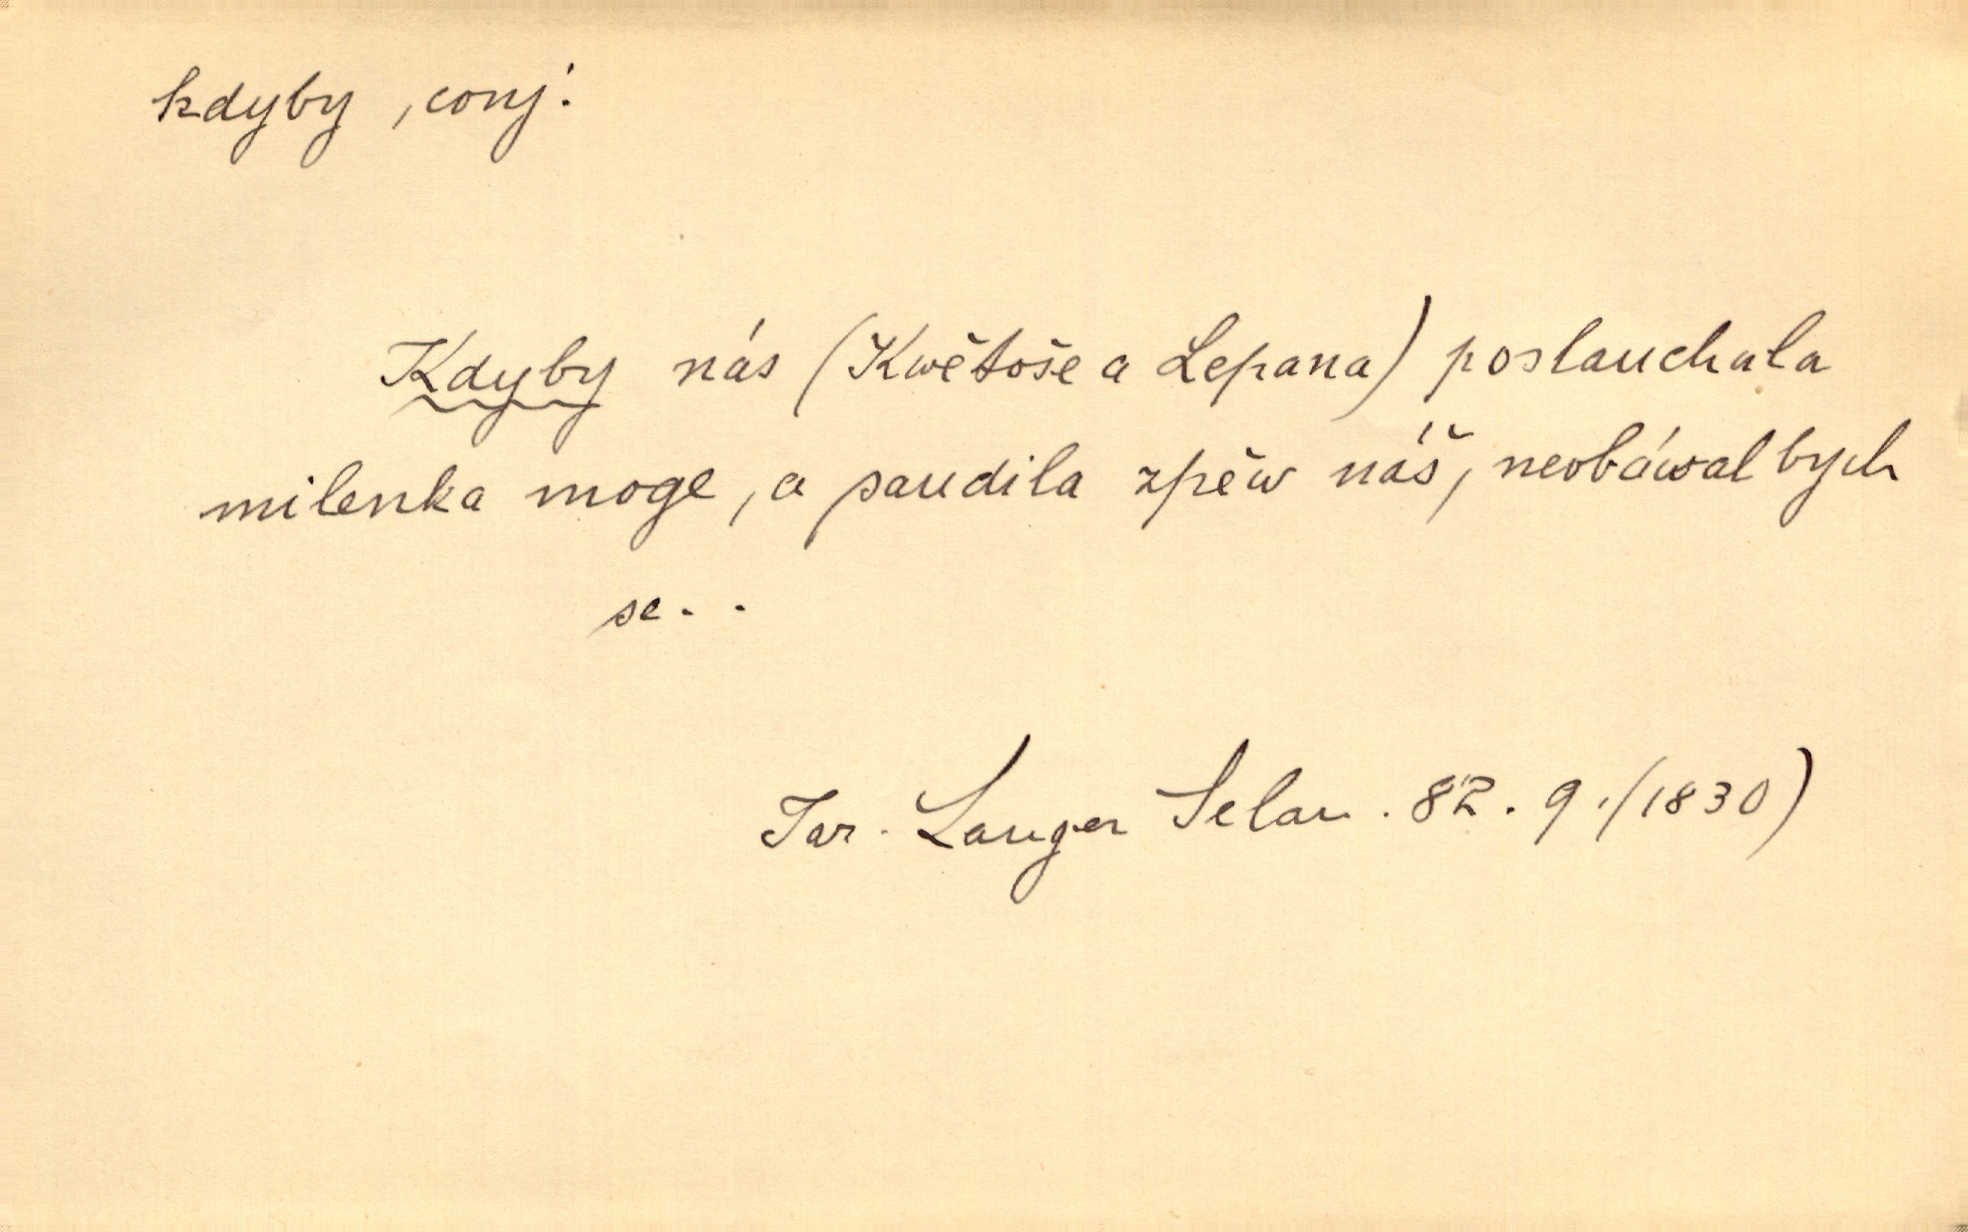 kdyby, conj.
Kdyby nás (Kwětoše a Lepana) poslauchala
milenka moge, a saudila zpěw náš, neobáwal bych
se. .
Jar. Langer Selan. 82. 9. (1830)